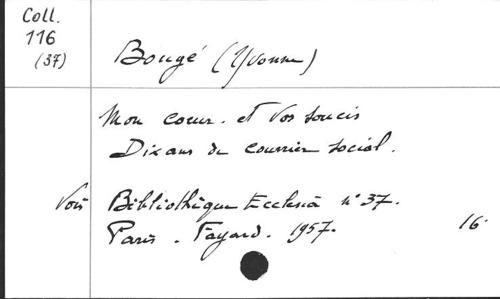 Coll.
116
(37)
Bougé (Yvonne)
Mon coeur. et Vos soucis
Dix ans de courrier social.
Voir Bibliothèque Ecclesia n° 37.
Paris. Fayard. 1957. 16°